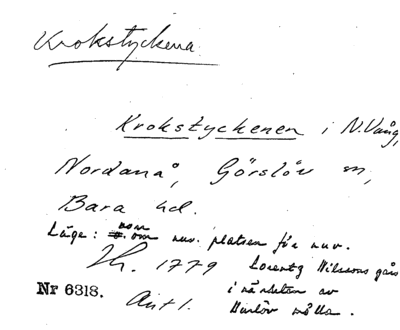 Krokstyckena
Krokstyckenen i N. Vång,
Nordanå, Görslöv sn,
Bara hd.
Läge: nv. om nuv. platsen för nuv.
Th. 1779 Lorentz Nilssons gård
i närheten av
Nr 6318. Ant 1. Hurlöv mölla.